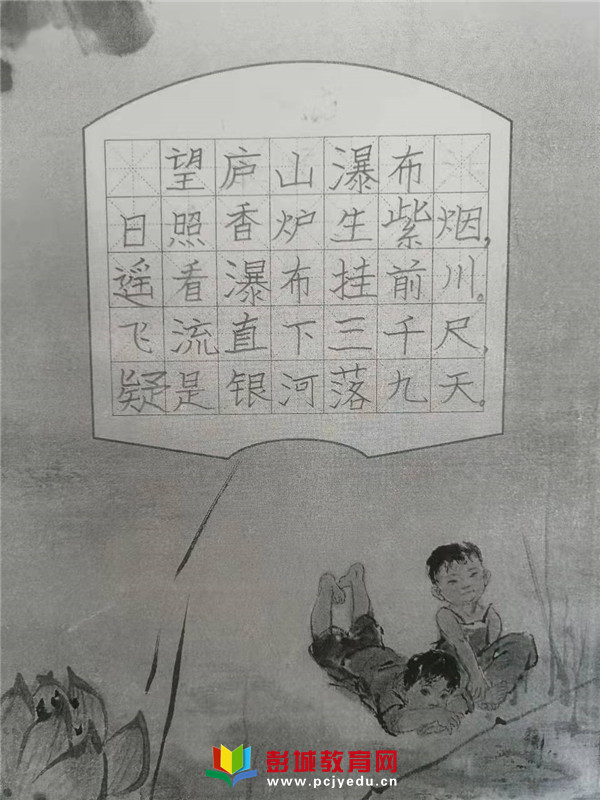 望庐山瀑布
日照香炉生紫烟，
遥看瀑布挂前川。
飞流直下三千尺，
疑是银河落九天。
彭城教育网
www.pcjyedu.cn